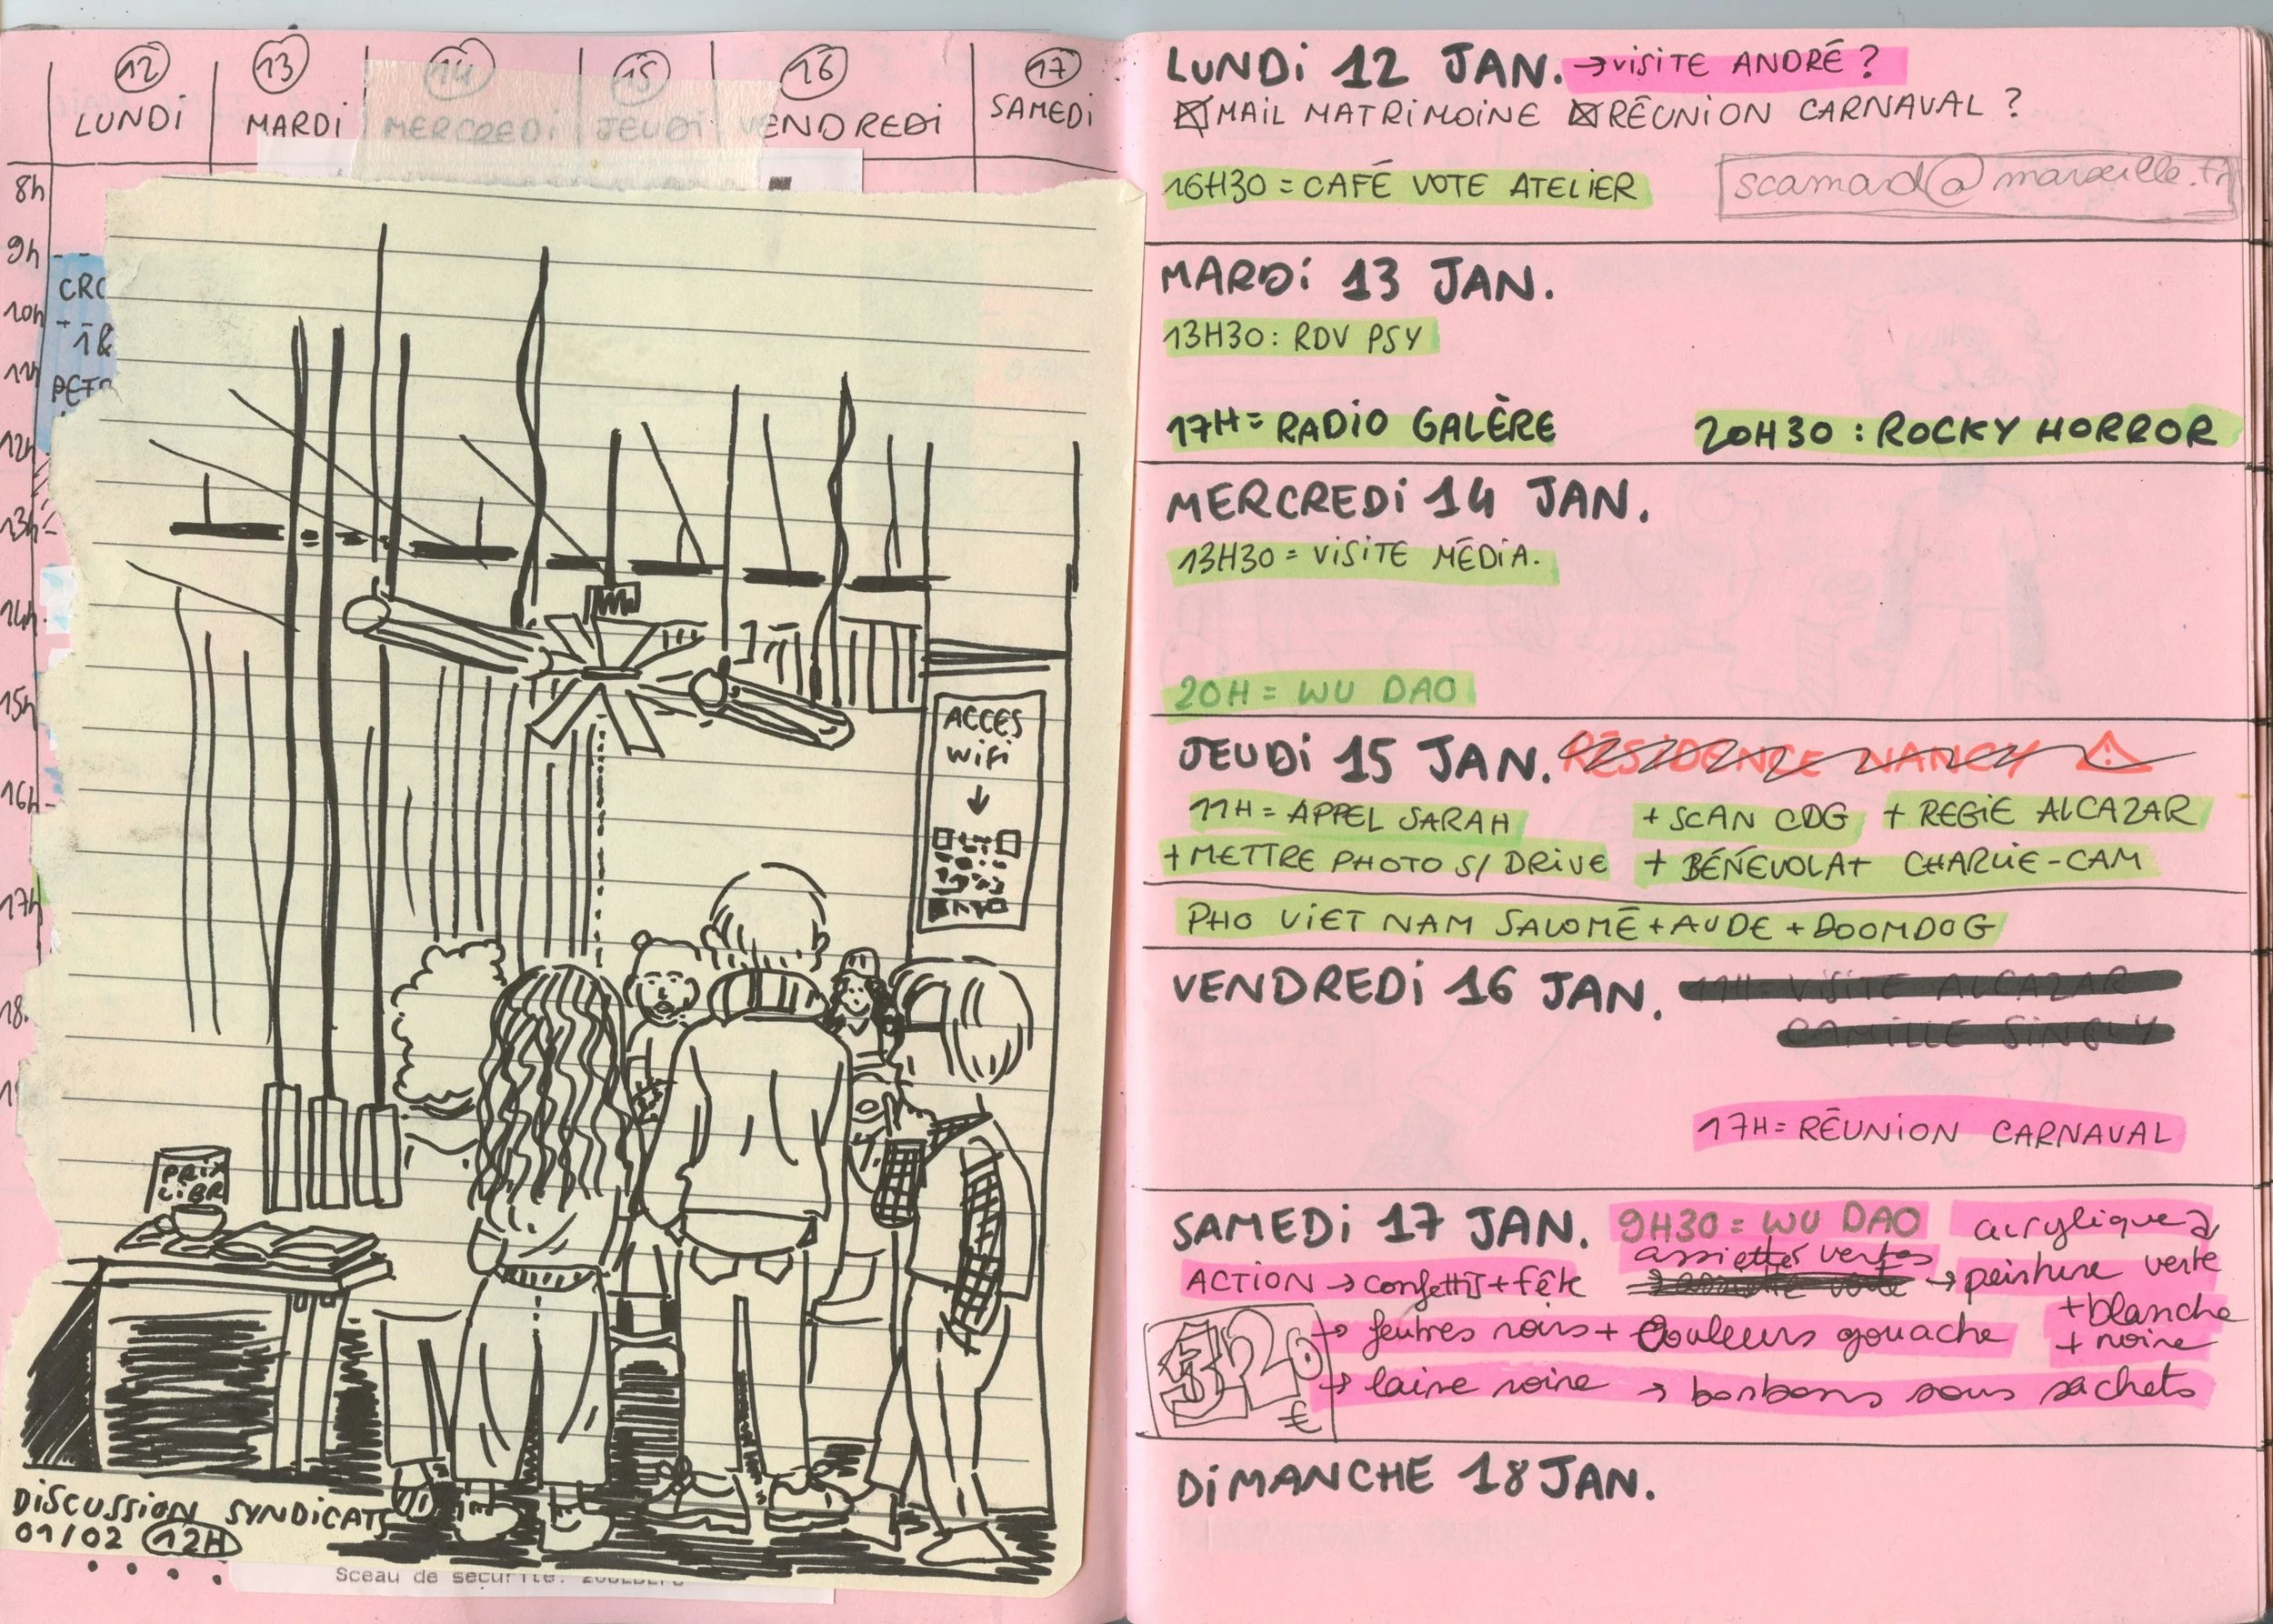 12 13 14 15 16 17
LUNDI MARDI MERCREDI JEUDI VENDREDI SAMEDI
8h
9h
CRC
10h
1&
11h
12h
13h
14h
15h
16h
17h
18.
ACCES
WIFI
PRIX
LIBR
DISCUSSION SYNDICATS
01/02 12H
Sceau de securite:
LUNDI 12 JAN. → VISITE ANDRÉ ?
MAIL MATRIMOINE RÉUNION CARNAVAL ?
16H30 = CAFÉ VOTE ATELIER
scamad@marseille.fr
MARDI 13 JAN.
13H30: RDV PSY
17H = RADIO GALÈRE 20H30 : ROCKY HORROR
MERCREDI 14 JAN.
13H30 = VISITE MÉDIA.
20H = WU DAO
JEUDI 15 JAN. RÉSIDENCE NANCY
11H = APPEL SARAH + SCAN CDG + REGIE ALCAZAR
+ METTRE PHOTO S/ DRIVE + BÉNÉVOLAT CHARLIE-CAM
PHO VIET NAM SALOMÉ + AUDE + DOOMDOG
VENDREDI 16 JAN. 11H = VISITE ALCAZAR
CAMILLE SINGLY
17H = RÉUNION CARNAVAL
SAMEDI 17 JAN. 9H30 = WU DAO acrylique
assiettes vertes
ACTION → confettis + fête → peinture verte
+ blanche
→ feutres noirs + couleurs gouache + noire
320 €
→ laine noire → bonbons sous sachets
DIMANCHE 18 JAN.